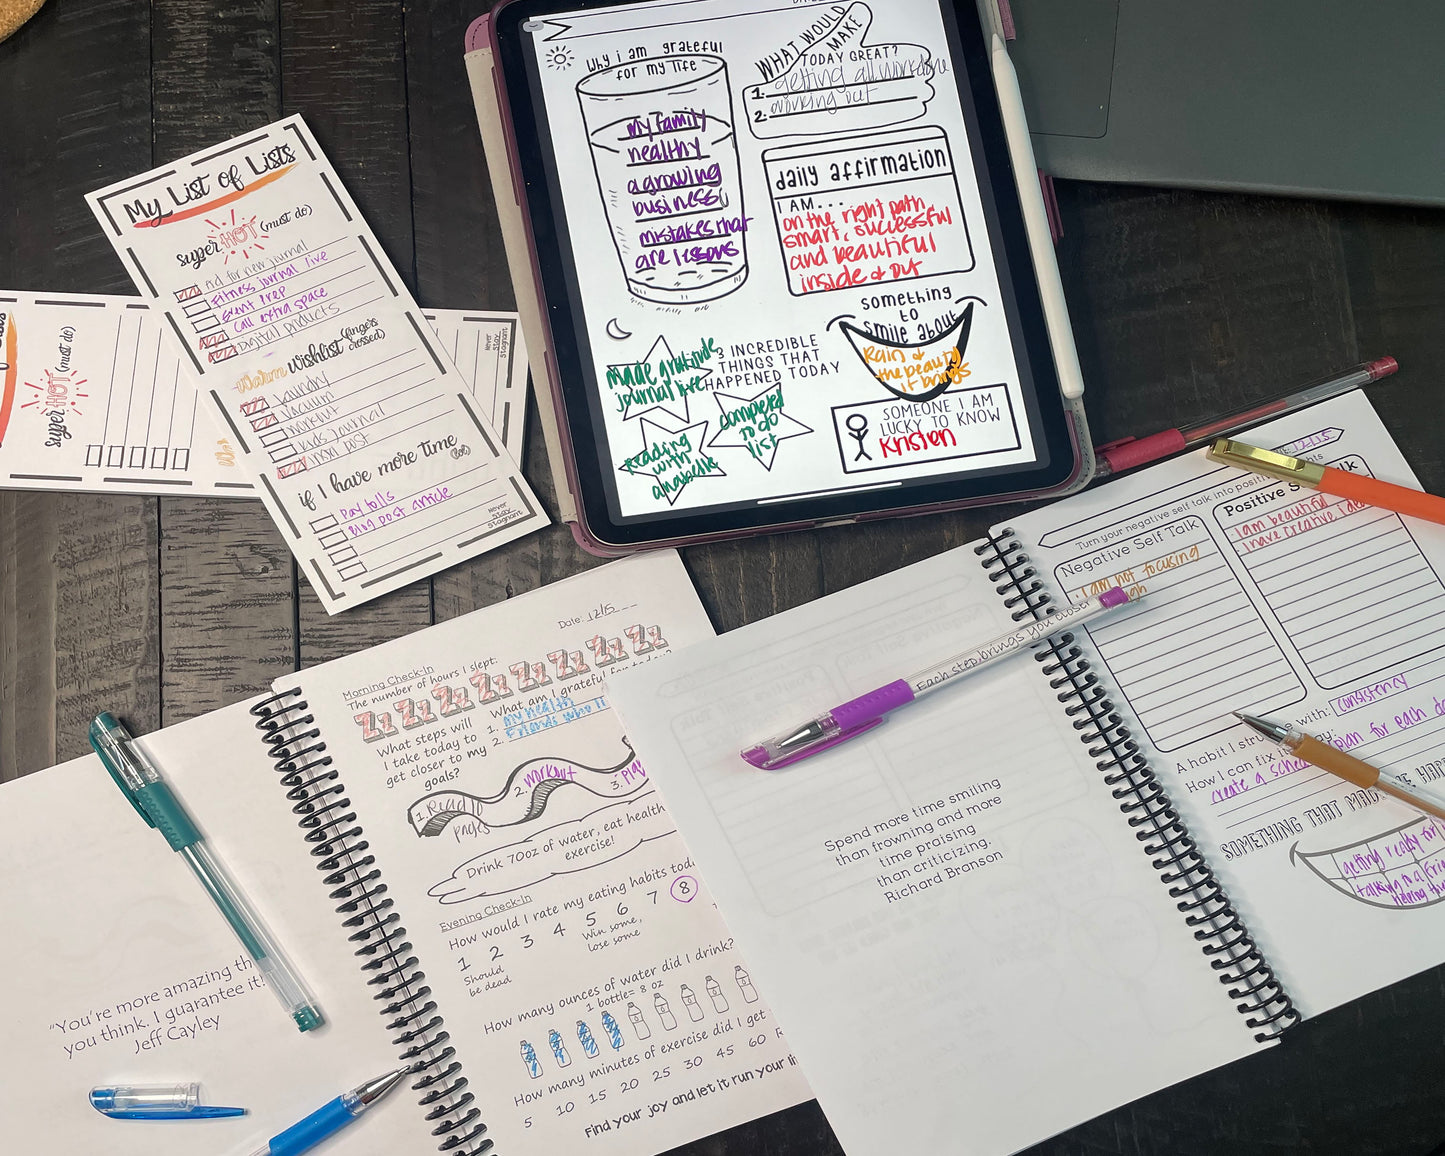 My List of Lists
super HOT (must do)
Ad for new journal
Fitness journal live
Event Prep
Call extra space
Digital products
Warm Wishlist (fingers crossed)
Laundry
Vacuum
Workout
Kids journal
Post
if I have more time (lol)
Pay tolls
Blog post article
Never
Stay
Stagnant
super HOT (must do)
Never
Stay
Stagnant
Why i am grateful
for my life
my family
healthy
a growing
business
mistakes that
are lessons
WHAT WOULD
MAKE
TODAY GREAT?
1. getting all work done
2. working out
daily affirmation
I AM...
on the right path
smart, successful
and beautiful
inside & out
something
to
smile about
Rain &
the beauty
it brings
3 INCREDIBLE
THINGS THAT
HAPPENED TODAY
made gratitude
journal live
completed
to do
list
Reading
with
anabelle
SOMEONE I AM
LUCKY TO KNOW
Kristen
Date: 12/15
Morning Check-In
The number of hours I slept:
Zz Zz Zz Zz Zz Zz Zz Zz
What am I grateful for today?
1. my health
2. Friends who
What steps will
I take today to
get closer to my
goals?
1. Read 10
pages
2. workout
3. Play
Drink 70oz of water, eat health
exercise!
Evening Check-In
How would I rate my eating habits tod
1 2 3 4 5 6 7 8
Should
be dead
Win some,
lose some
How many ounces of water did I drink?
1 bottle= 8 oz
How many minutes of exercise did I get
5 10 15 20 25 30 45 60
Find your joy and let it run your li
"You're more amazing th
you think. I guarantee it!
Jeff Cayley
Each step brings you closer
Spend more time smiling
than frowning and more
time praising
than criticizing.
Richard Branson
12-15
Turn your negative self talk into positi
Negative Self Talk
i am not focusing
Positive S lk
i am beautiful
i have creative idea
A habit I stru e with: consistency
How I can fix
create a sched plan for each d
SOMETHING THAT MAD ME HAPP
getting ready for
talking to a frie